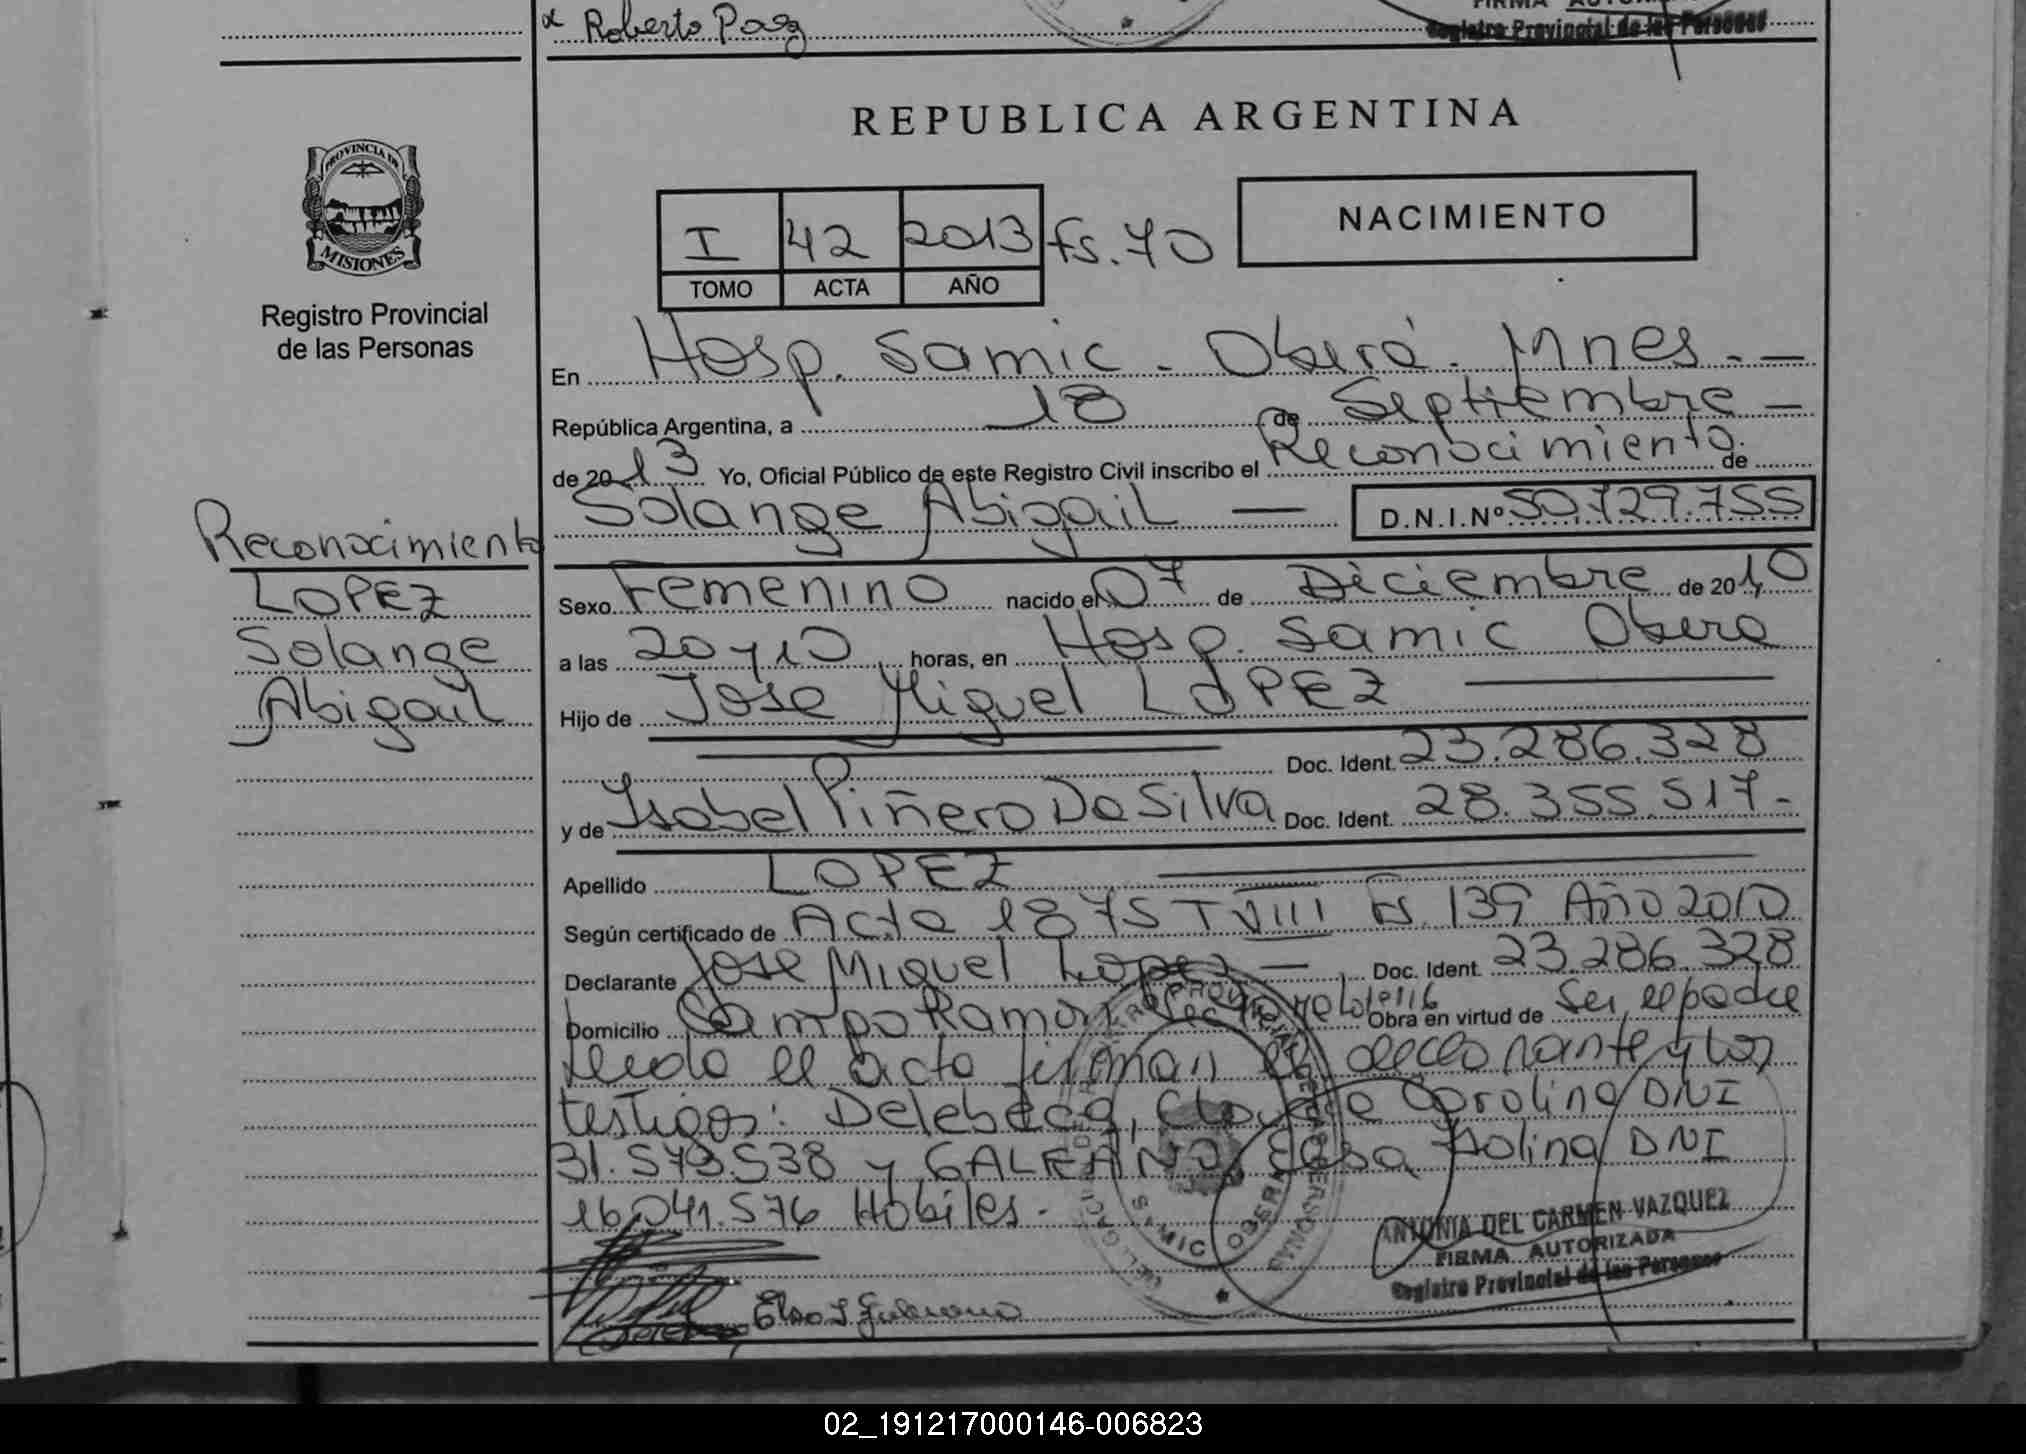 Roberto Paez
Registro Provincial de las Personas
REPUBLICA ARGENTINA
PROVINCIA DE
MISIONES
Registro Provincial
de las Personas
I 42 2013 fs. 70
TOMO ACTA AÑO
NACIMIENTO
En Hosp. Samic - Oberá. Mnes. -
República Argentina, a 18 de Septiembre -
de 2013 Yo, Oficial Público de este Registro Civil inscribo el Reconocimiento. de
Solange Abigail — D.N.I.Nº 50.729.755
Reconocimiento
LOPEZ
Solange
Abigail
Sexo Femenino nacido el 07 de Diciembre de 2010
a las 20 y 10 horas, en Hosp. Samic Obera
Hijo de Jose Miguel LOPEZ
Doc. Ident. 23.286.328
y de Isabel Piñero Da Silva Doc. Ident. 28.355.517.-
Apellido LOPEZ
Según certificado de Acta 1875 T VIII Fs. 139 Año 2010
Declarante Jose Miguel Lopez — Doc. Ident. 23.286.328
Domicilio Campo Ramon Obra en virtud de Ser el padre
leida el acta firman el declarante y los
testigos: Delebecq, Claudia Carolina DNI
31.573.538 y GALEANO, Elsa Isolina DNI
16.041.576 Habiles.-
SAMIC OBERA
ANTONIA DEL CARMEN VAZQUEZ
FIRMA AUTORIZADA
Registro Provincial de las Personas
02_191217000146-006823